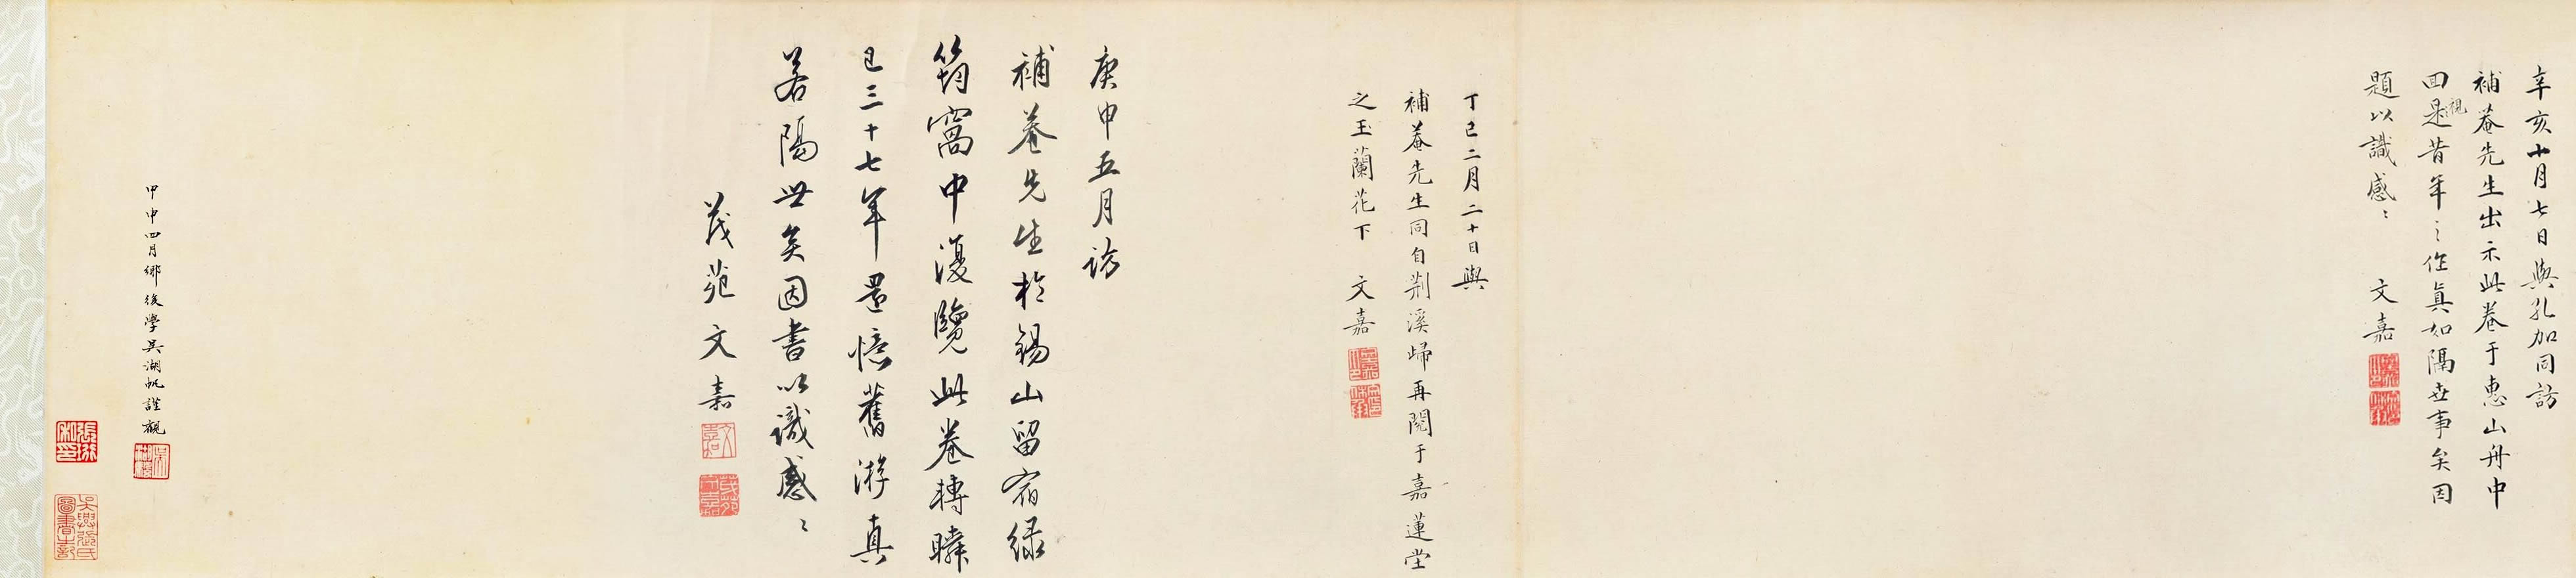 辛亥十月七日與孔加同訪
補菴先生出示此卷于惠山舟中
回視是昔年〻作真如隔世事矣因
題以識感〻 文嘉
丁巳二月二十日與
補菴先生同自荆溪歸再閱于嘉蓮堂
之玉蘭花下 文嘉
庚申五月訪
補菴先生於錫山留宿緑
筠窩中漫覽此卷轉瞬
已三十七年還憶舊游真
若隔世矣因書以識感〻
茂苑文嘉
甲申四月鄉後學吳湖帆謹觀